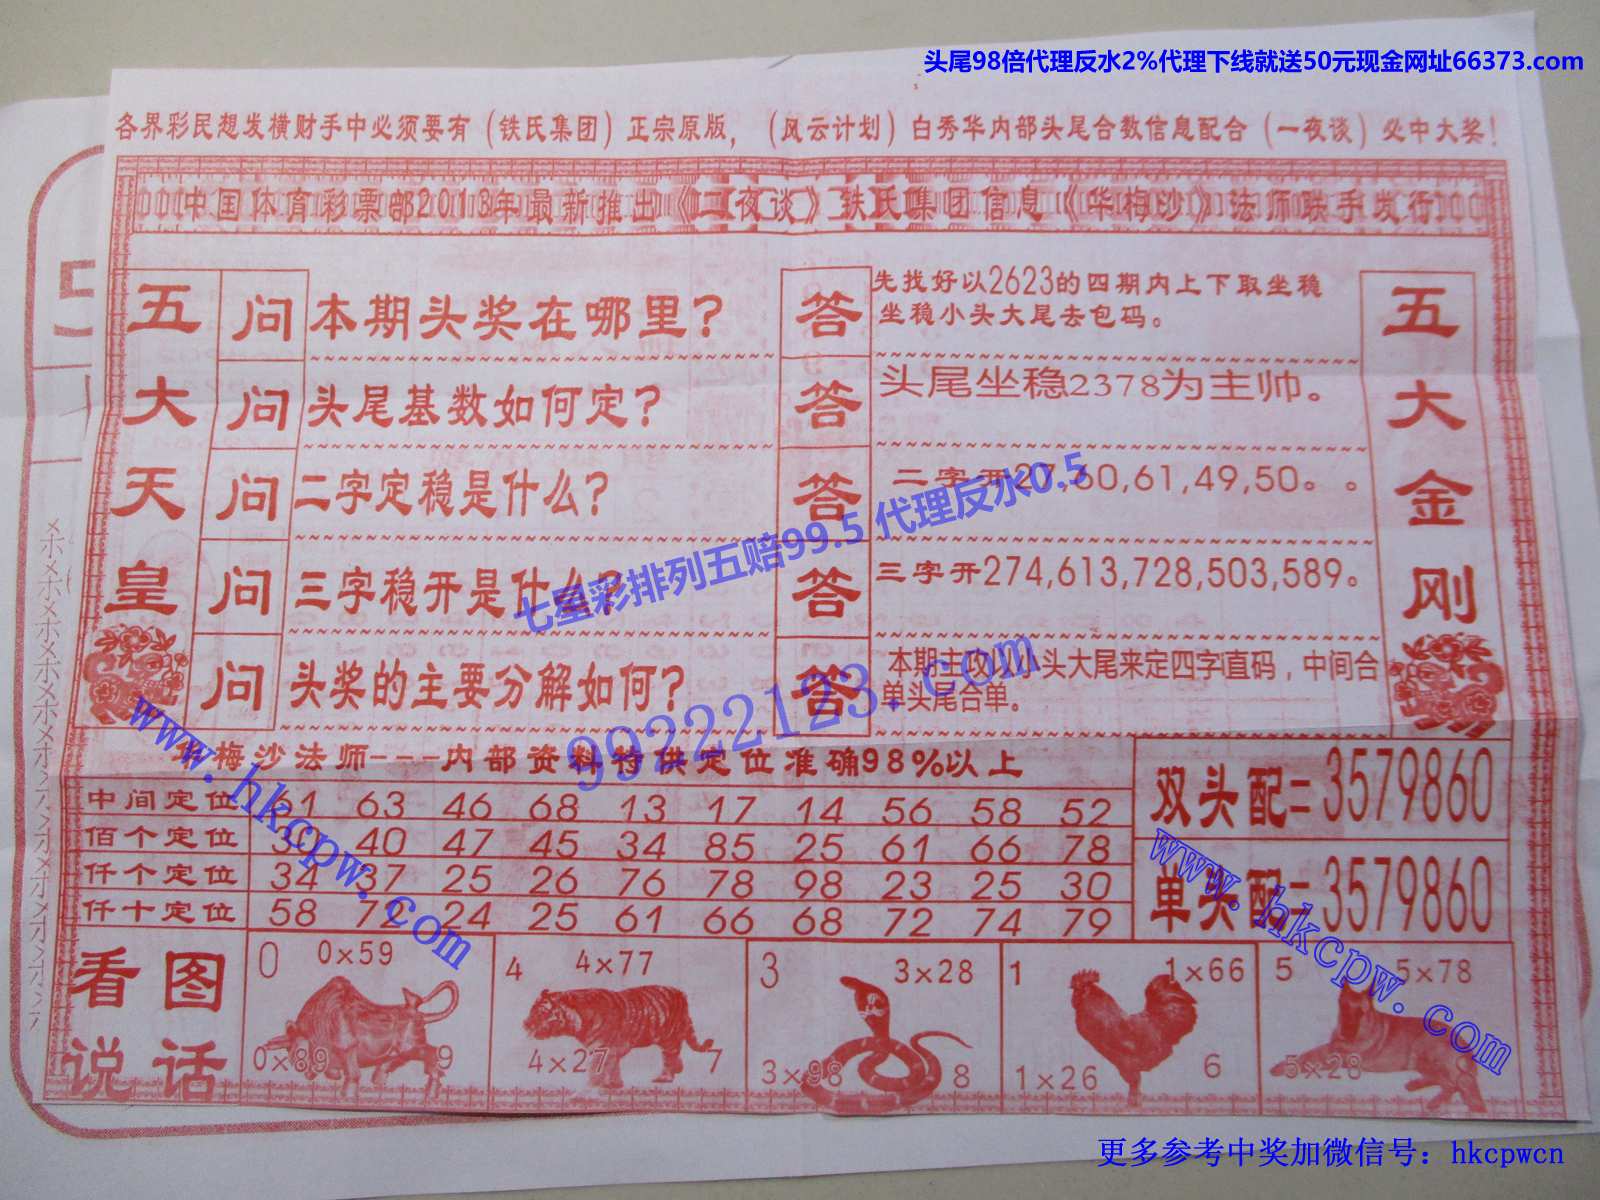 头尾98倍代理反水2%代理下线就送50元现金网址66373.com
各界彩民想发横财手中必须要有（铁氏集团）正宗原版，（风云计划）白秀华内部头尾合数信息配合（一夜谈）必中大奖！
中国体育彩票部2013年最新推出《一夜谈》铁氏集团信息《华梅沙》法师联手发行
五大天皇
问 本期头奖在哪里？
答 先找好以2623的四期内上下取坐稳
坐稳小头大尾去包码。
问 头尾基数如何定？
答 头尾坐稳2378为主帅。
问 二字定稳是什么？
答 二字开27,60,61,49,50。。
问 三字稳开是什么？
答 三字开274,613,728,503,589。
问 头奖的主要分解如何？
答 本期主攻以小头大尾来定四字直码，中间合
单头尾合单。
五大金刚
七星彩排列五赔99.5 代理反水0.5
99222123.com
www.hkcpw.com
华梅沙法师---内部资料特供定位准确98%以上
中间定位 61 63 46 68 13 17 14 56 58 52
佰个定位 40 47 45 34 85 25 61 66 78
仟个定位 34 37 25 26 76 78 98 23 25 30
仟十定位 58 72 24 25 61 66 68 72 74 79
双头配=3579860
单头配=3579860
www.hkcpw.com
看图
说话
0 0×59
0×89 9
4 4×77
4×27 7
3 3×28
3×98 8
1 1×66
1×26 6
5 5×78
5×28
更多参考中奖加微信号：hkcpwcn